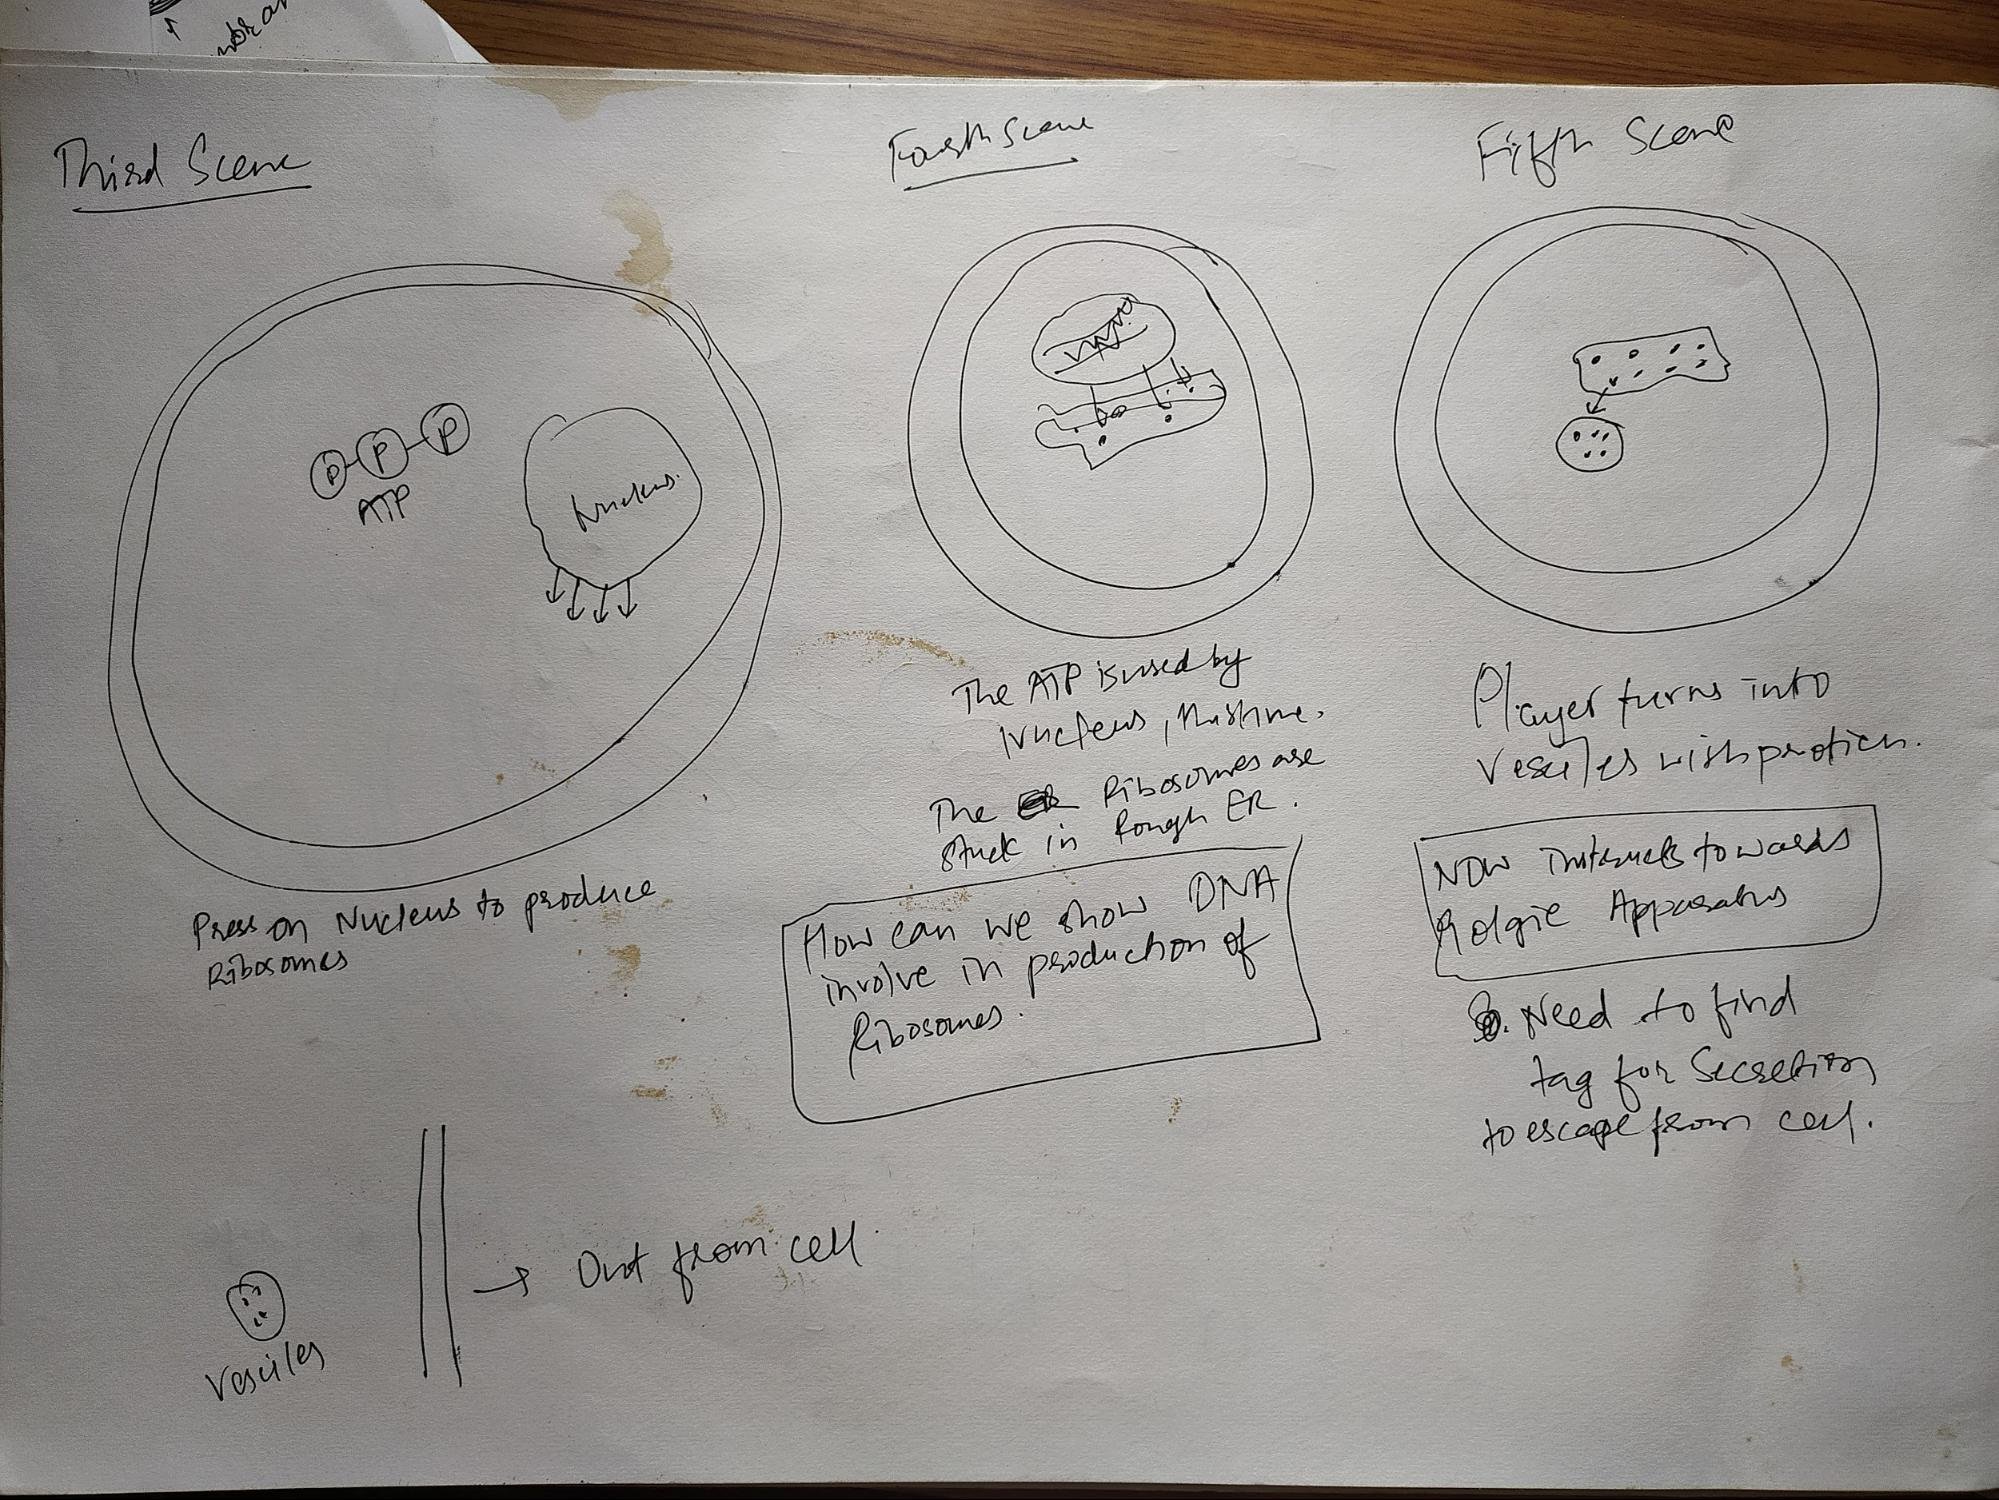 Third Scene
P P P
ATP
Nucleus.
Press on Nucleus to produce
Ribosomes
Vesciles
→ Out from cell.
Fourth Scene
The ATP is used by
Nucleus, this time.
The Ribosomes are
stuck in Rough ER.
How can we show DNA
involve in production of
Ribosomes.
Fifth Scene
Player turns into
Vesciles with protien.
Now interacts towards
Golgie Apparatus
Need to find
tag for Secretion
to escape from cell.